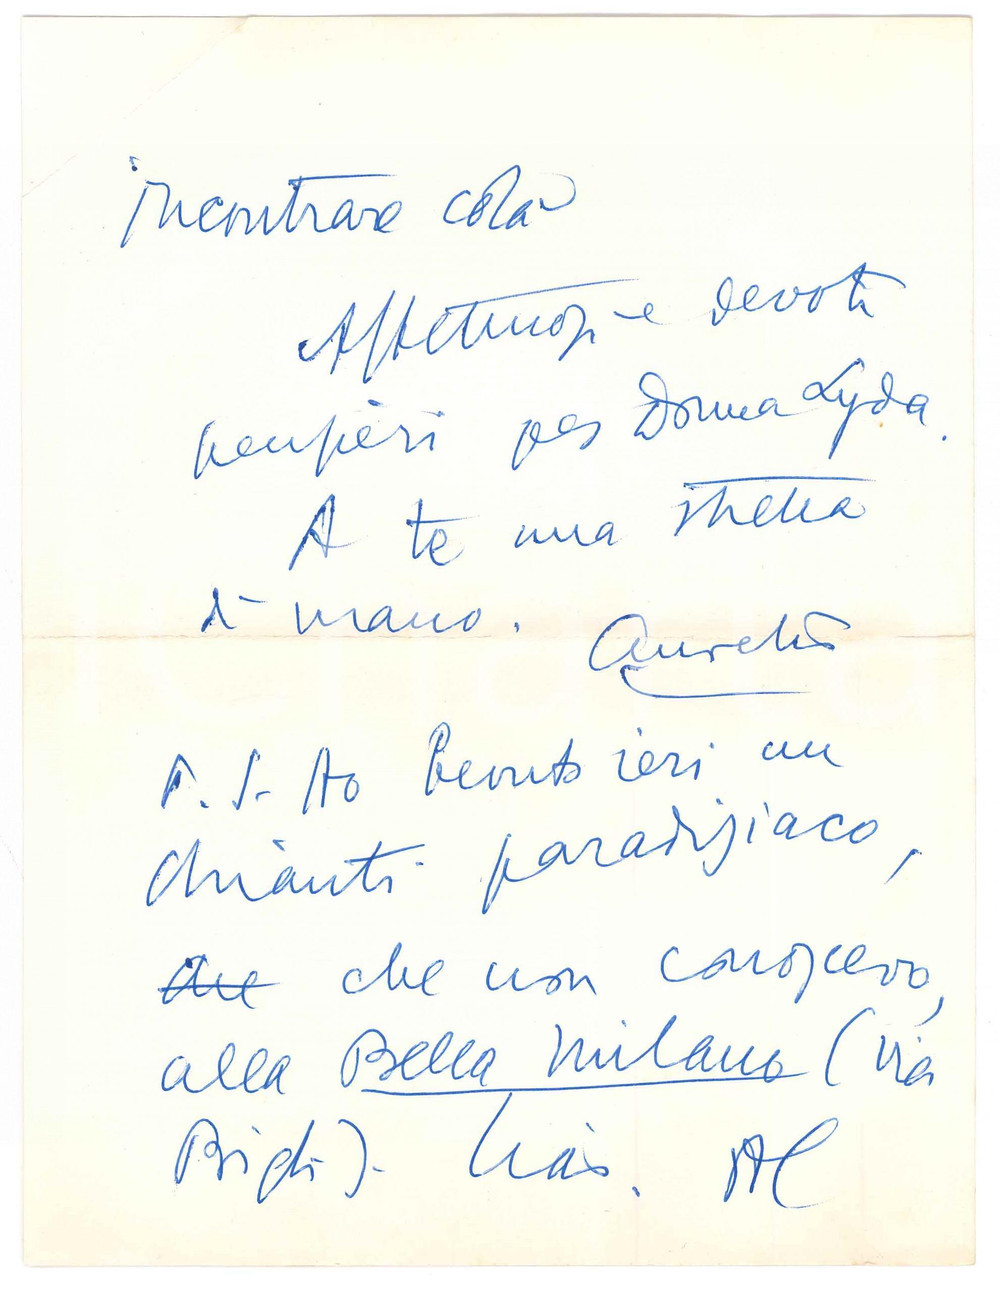 incontrare colà
Affettuosi e devoti
pensieri per Donna Lyda.
A te una stretta
di mano.
Aurelio
P.S. Ho bevuto ieri un
chianti paradisiaco,
che che non conoscevo,
alla Bella Milano (via
Brigh). Ciao. AC